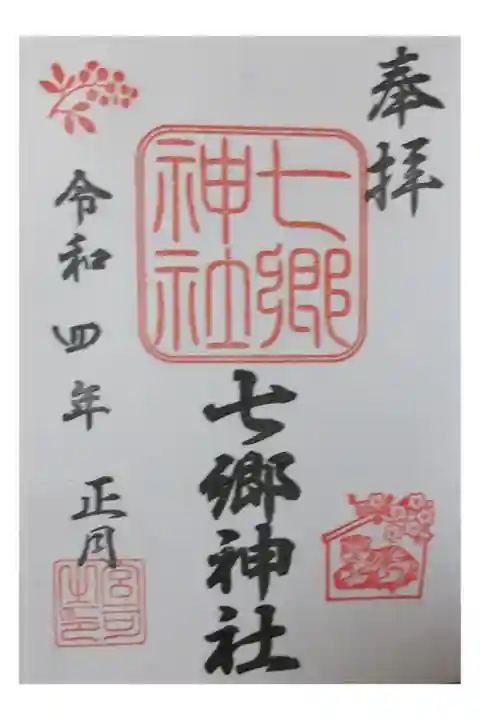 奉拝
七郷
神社
七郷神社
令和四年正月
宮司之印